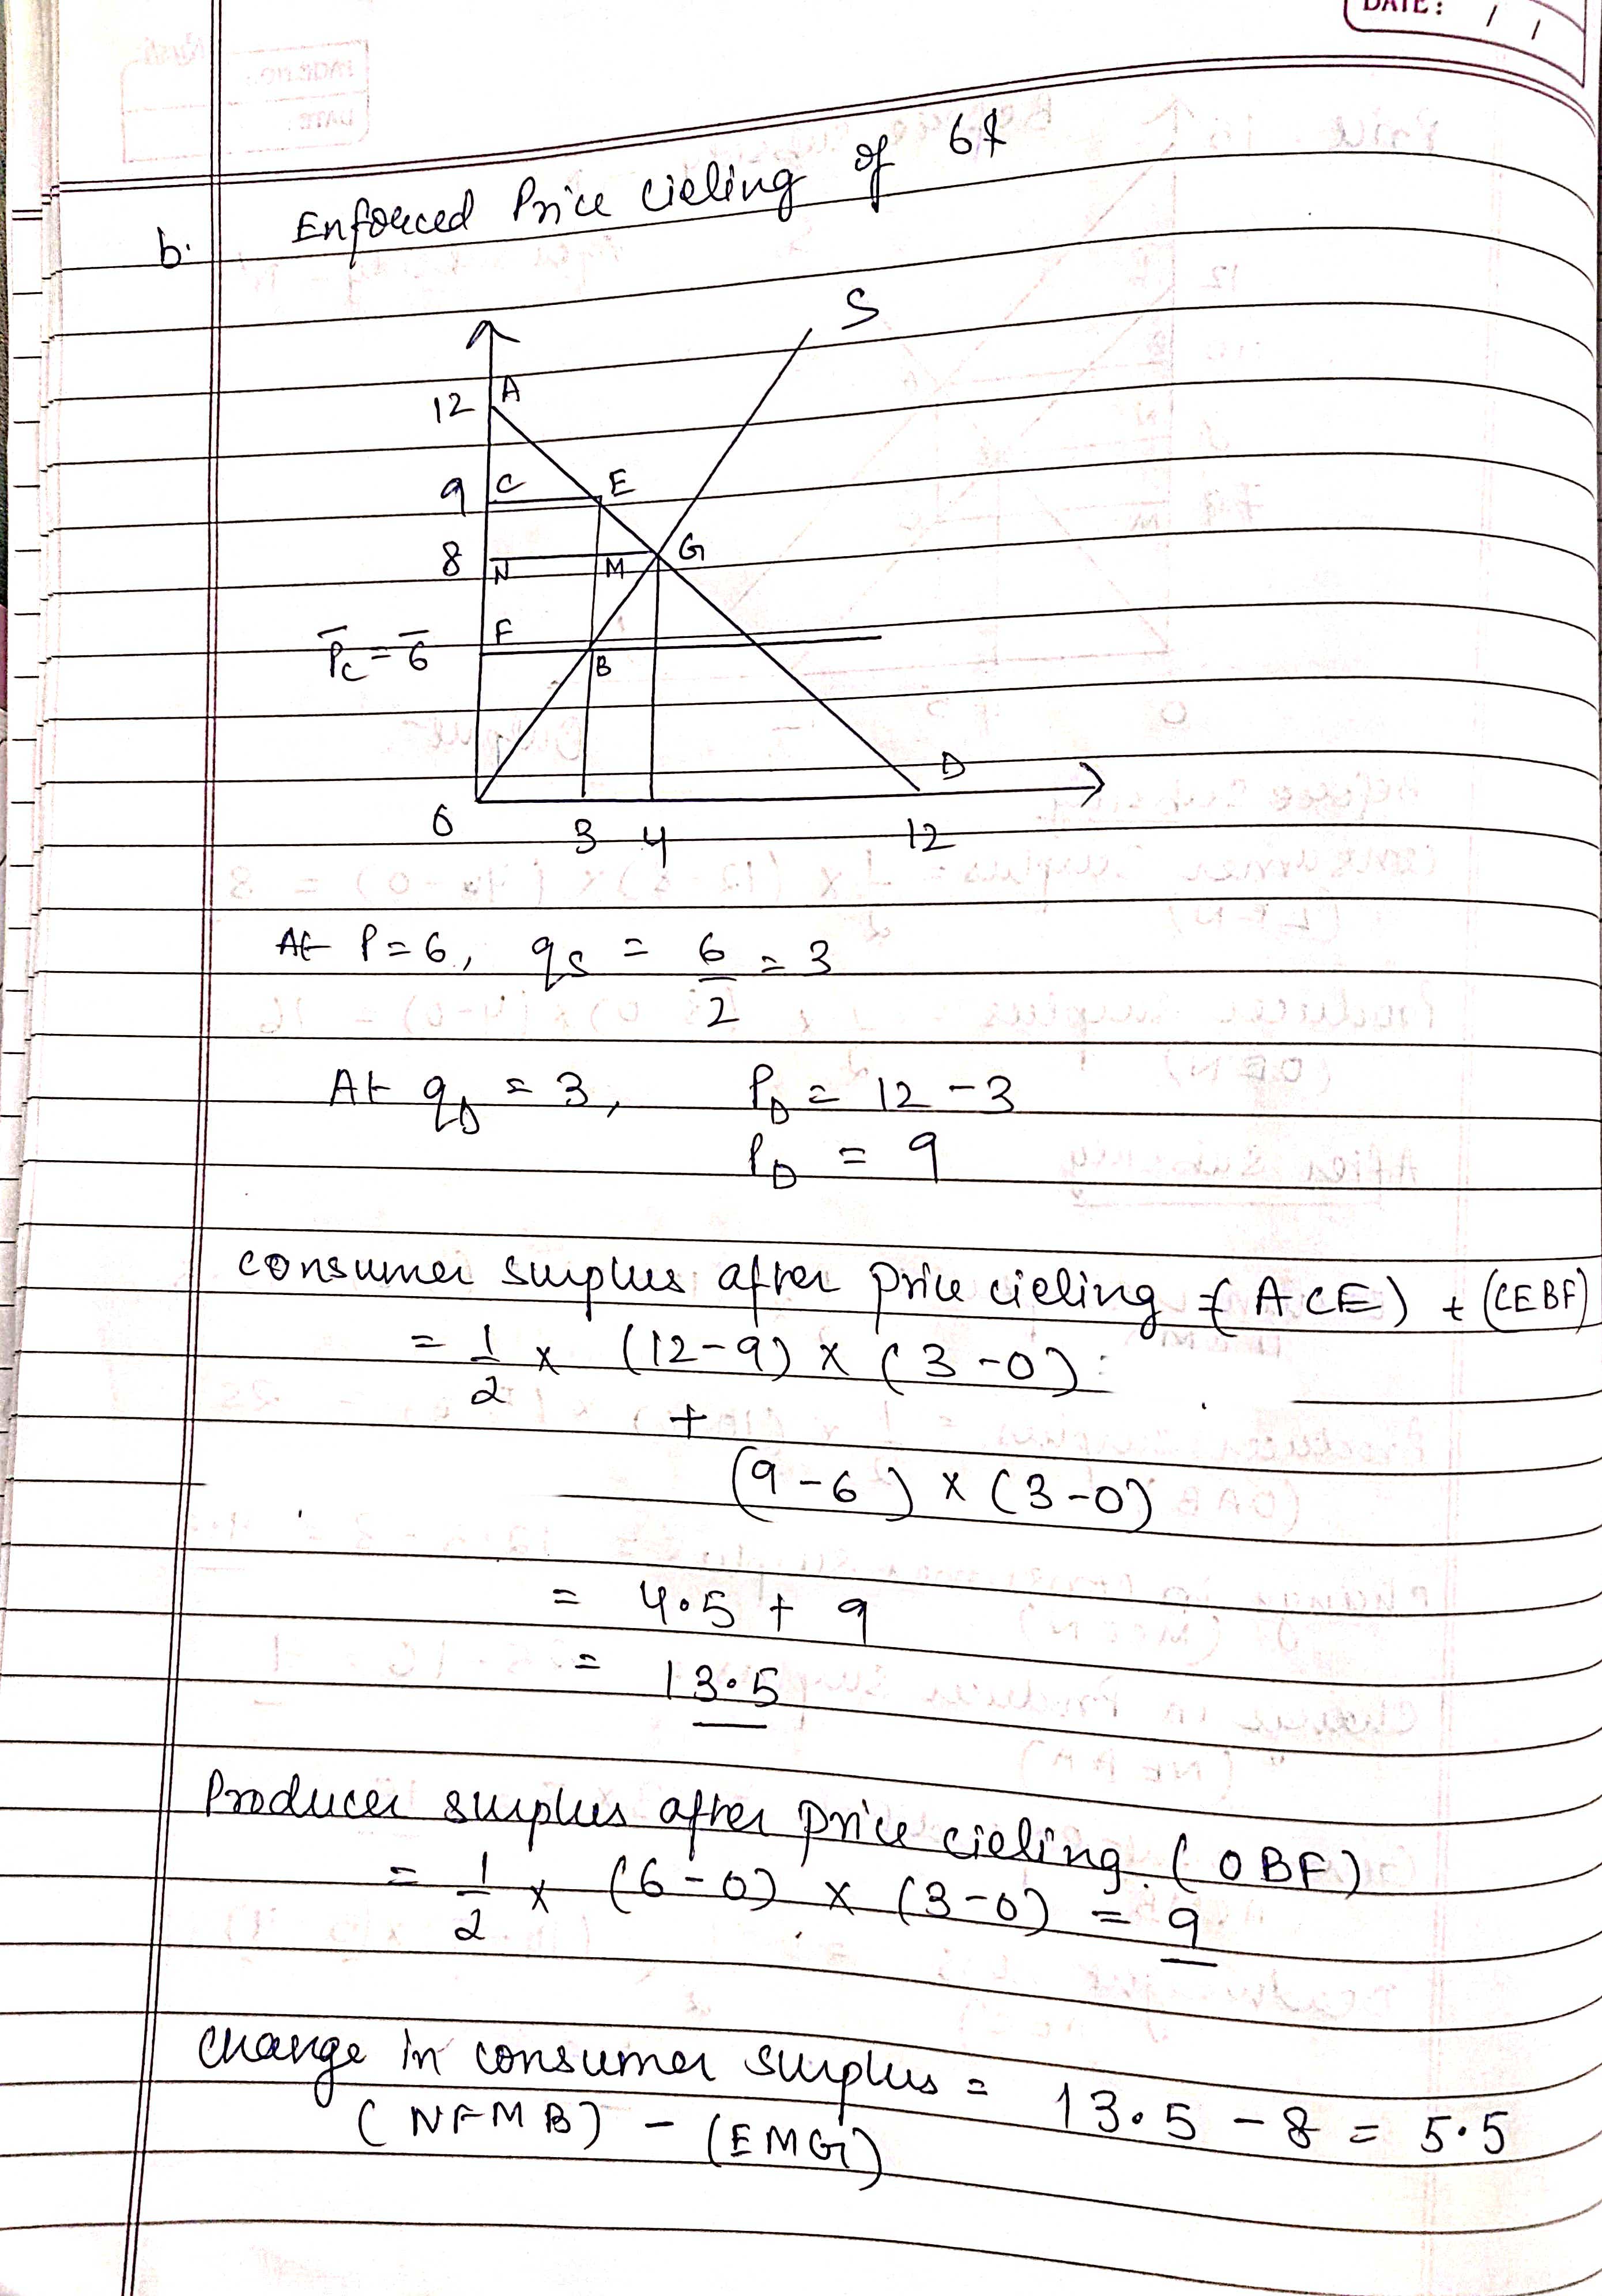 DATE: / /
b. Enforced Price cieling of 6$
S
12 A
9 C E
8 N M G
P̅c = 6̅ F B
D
0 3 4 12
At P = 6, qs = 6/2 = 3
At qD = 3, PD = 12 - 3
PD = 9
consumer surplus after price cieling = (ACE) + (CEBF)
= 1/2 x (12-9) x (3-0)
+
(9-6) x (3-0)
= 4.5 + 9
= 13.5
Producer surplus after price cieling. (OBF)
= 1/2 x (6-0) x (3-0) = 9
change in consumer surplus = 13.5 - 8 = 5.5
(NFMB) - (EMG)